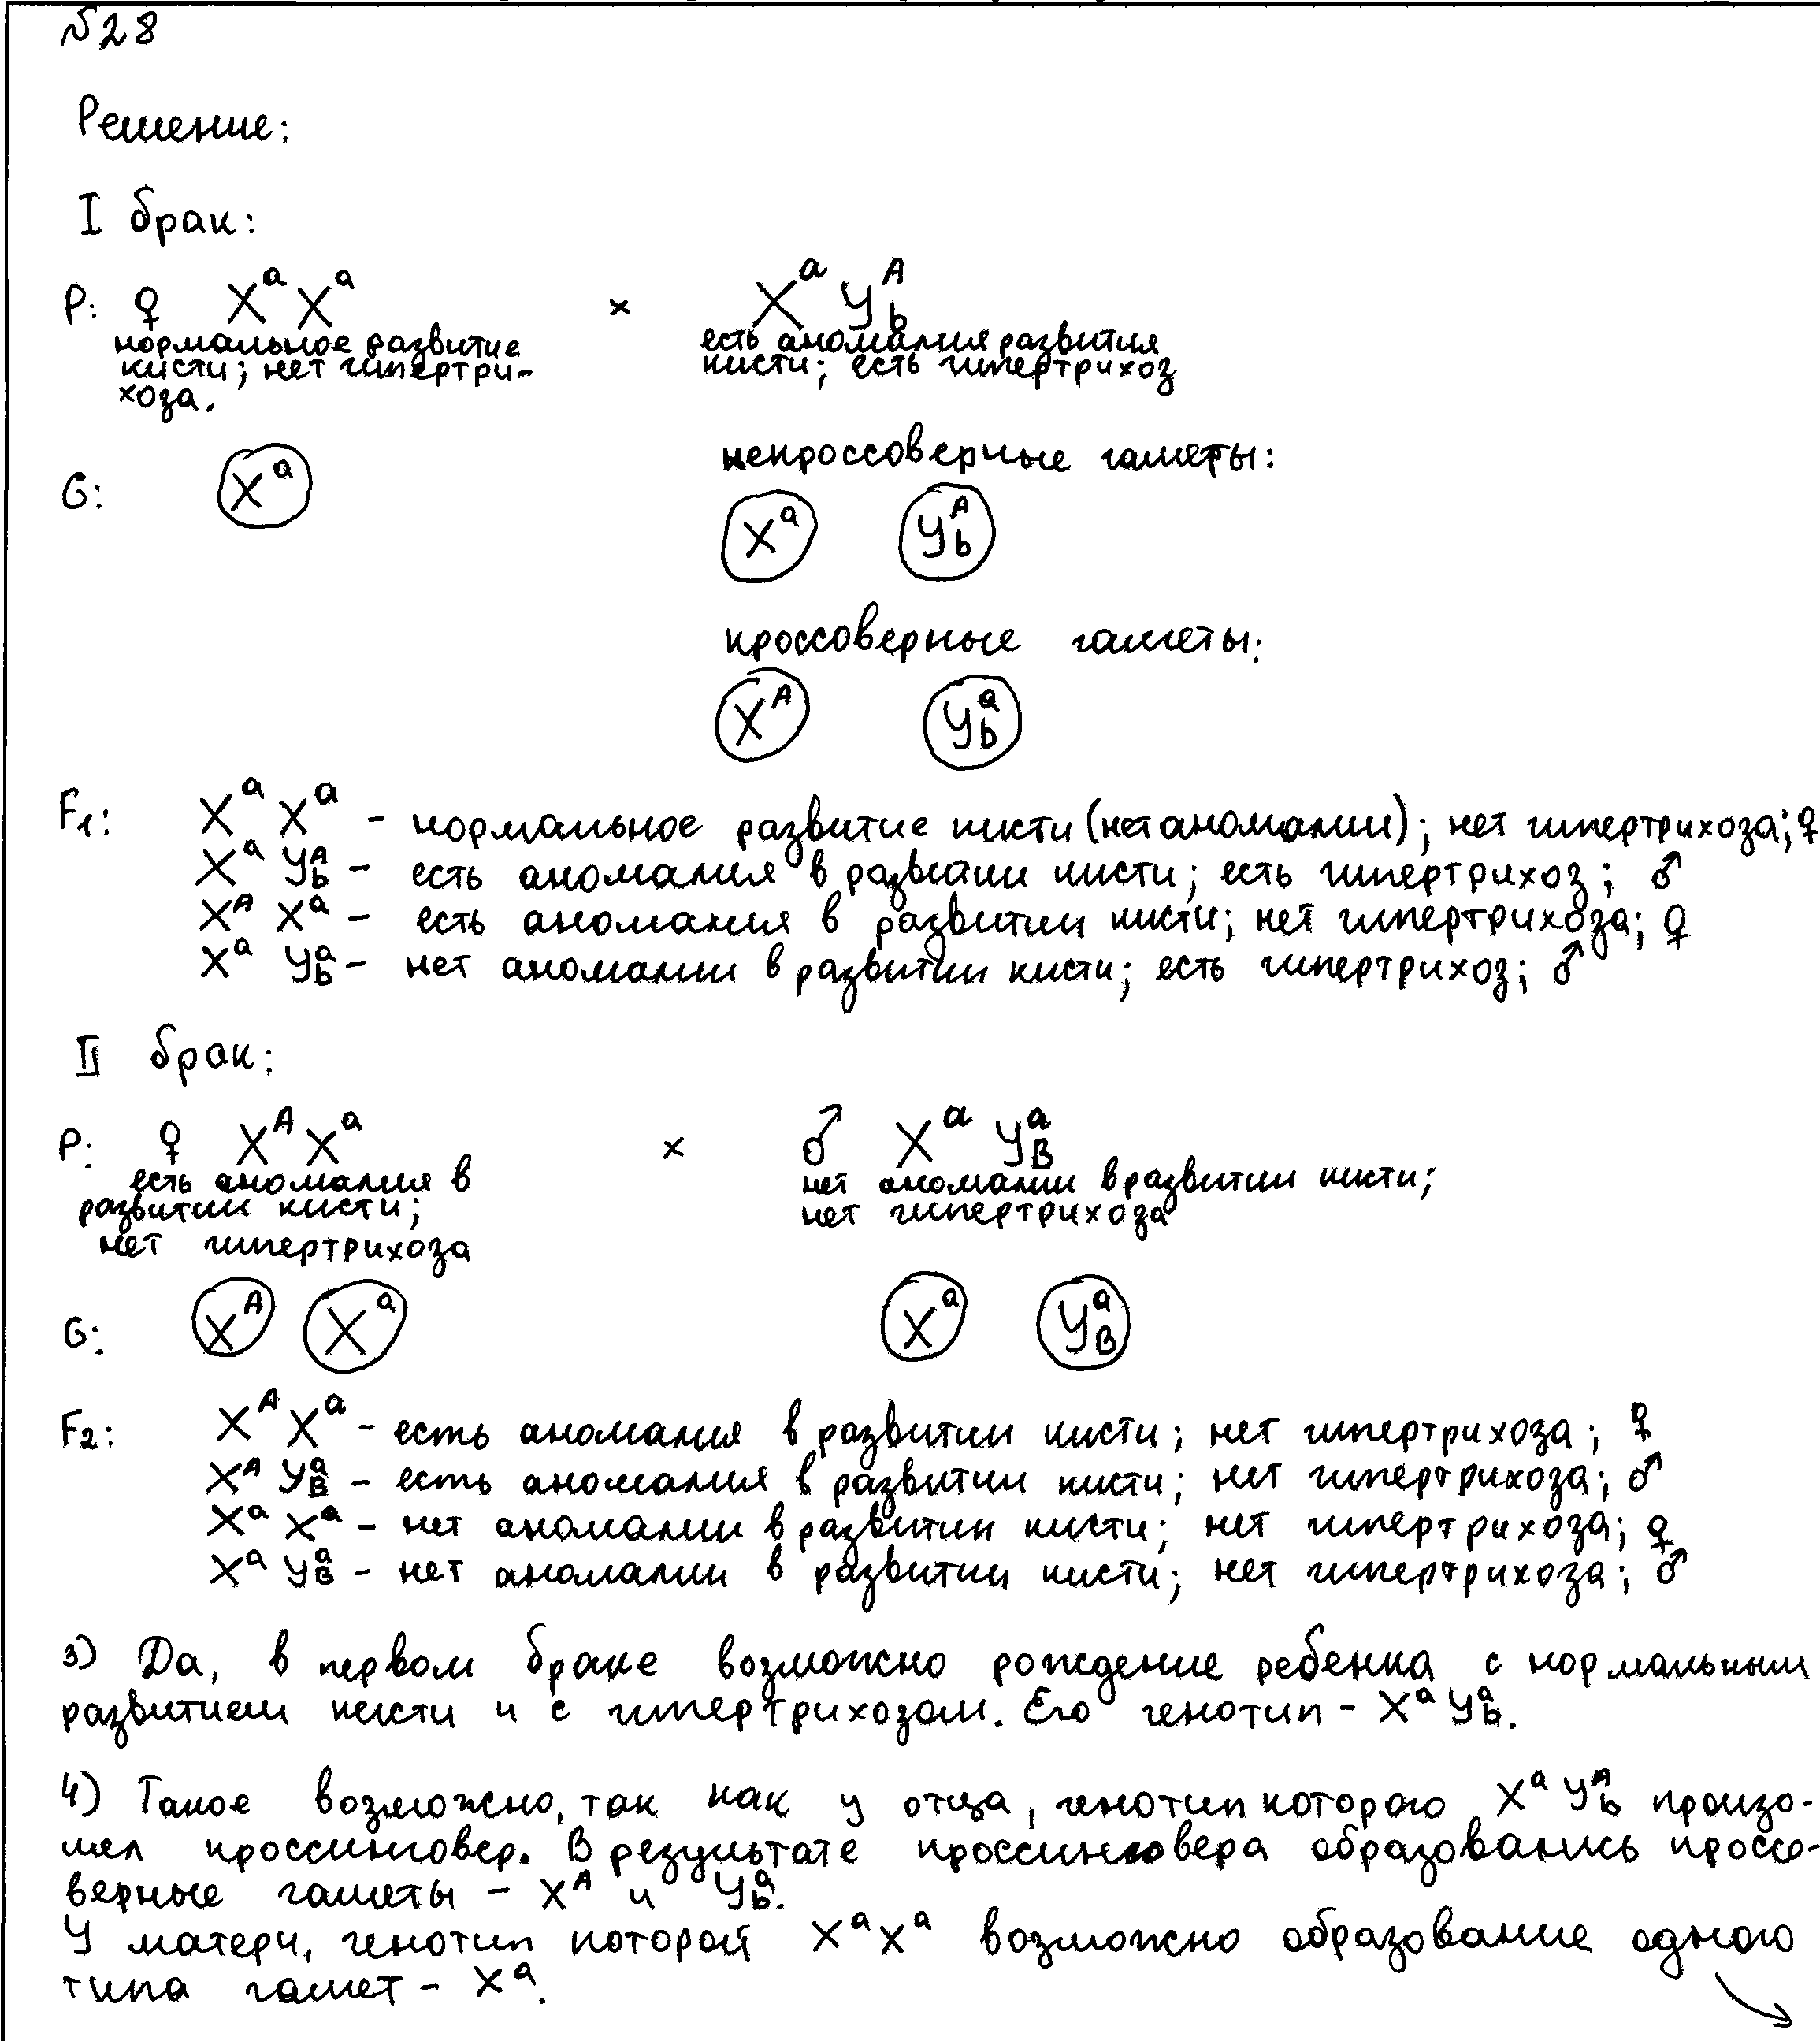 №28
Решение:
I брак:
P: ♀ XᵃXᵃ × XᵃY_b^A
нормальное развитие кисти; нет гипертри-
хоза.
есть аномалия развития
кисти; есть гипертрихоз
некроссоверные гаметы:
G: Xᵃ Xᵃ Y_b^A
кроссоверные гаметы:
X^A Y_b^a
F₁: XᵃXᵃ - нормальное развитие кисти (нет аномалии); нет гипертрихоза; ♀
XᵃY_b^A - есть аномалия в развитии кисти; есть гипертрихоз; ♂
X^AXᵃ - есть аномалия в развитии кисти; нет гипертрихоза; ♀
XᵃY_b^a - нет аномалии в развитии кисти; есть гипертрихоз; ♂
II брак:
P: ♀ X^AXᵃ × ♂ XᵃY_B^a
есть аномалия в
развитии кисти;
нет гипертрихоза
нет аномалии в развитии кисти;
нет гипертрихоза
G: X^A Xᵃ Xᵃ Y_B^a
F₂: X^AXᵃ - есть аномалия в развитии кисти; нет гипертрихоза; ♀
X^AY_B^a - есть аномалия в развитии кисти; нет гипертрихоза; ♂
XᵃXᵃ - нет аномалии в развитии кисти; нет гипертрихоза; ♀
XᵃY_B^a - нет аномалии в развитии кисти; нет гипертрихоза; ♂
3) Да, в первом браке возможно рождение ребенка с нормальным
развитием кисти и с гипертрихозом. Его генотип - XᵃY_b^a.
4) Такое возможно, так как у отца, генотип которого XᵃY_b^A произо-
шел кроссинговер. В результате кроссинговера образовались кроссо-
верные гаметы - X^A и Y_b^a.
У матери, генотип которой XᵃXᵃ возможно образование одного
типа гамет - Xᵃ.